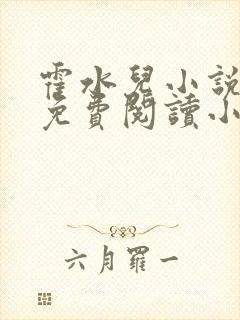 霍水兒小説
免費閱讀小
六月羅一